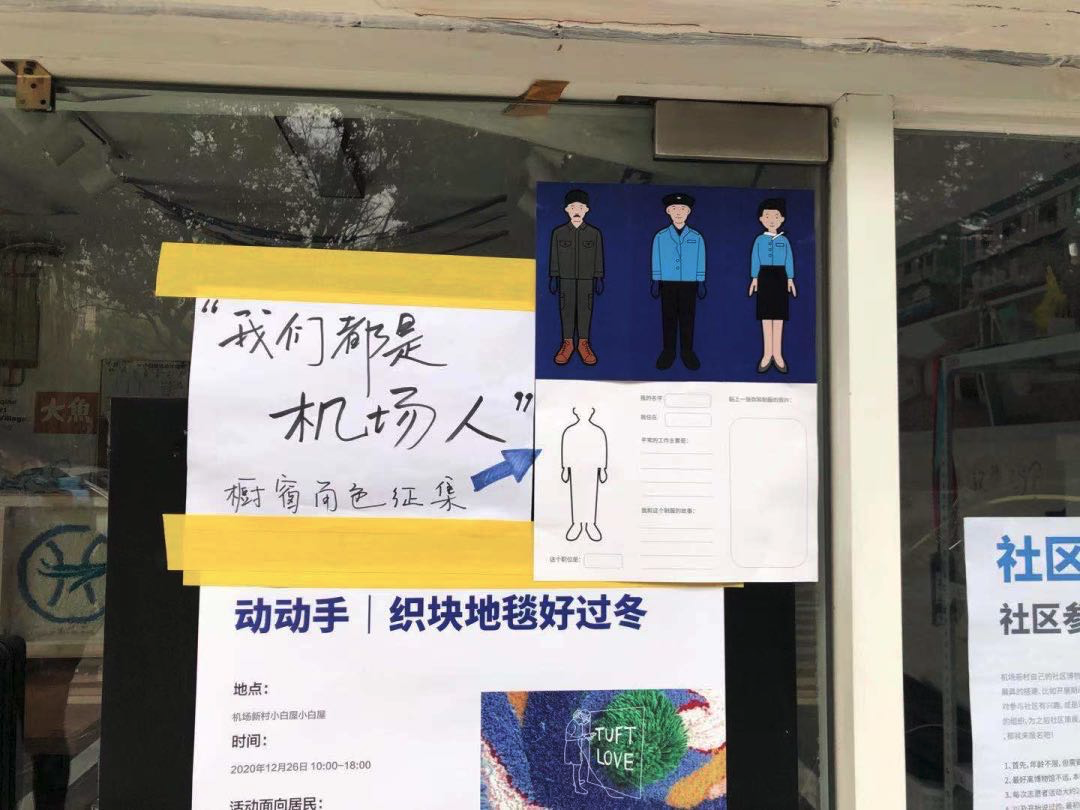 “我们都是
机场人”
橱窗角色征集
我的名字
我住在
平常的工作主要是:
我和这个制服的故事:
这个职位是:
贴上一张你穿制服的照片:
大魚
Village
动动手｜织块地毯好过冬
地点:
机场新村小白屋小白屋
时间:
2020年12月26日 10:00-18:00
活动面向居民:
TUFT
LOVE
社区
社区参
机场新村自己的社区博物